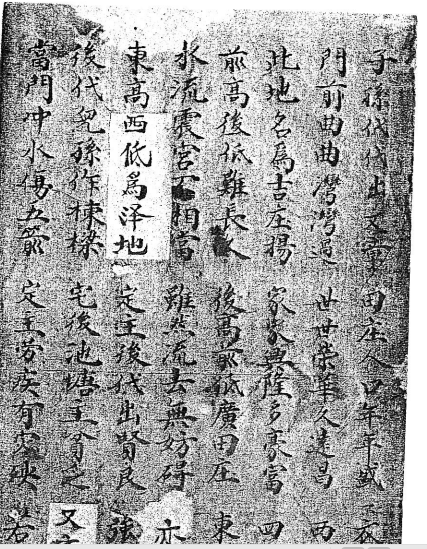 子孫代代出文章 田庄人口年年盛
門前曲曲灣灣過 世世榮華人達昌 西
此地名爲吉庄場 家家興隆多豪富 四
前高後低難長久 後高前低廣田庄 東
水流震宮不相當 雖然流去無妨碍 亦
東高西低爲泽地 定主後代出賢良 強
後代兒孫作棟樑 宅後池塘主 又
當門冲水傷五 定主劳疾有灾殃 若